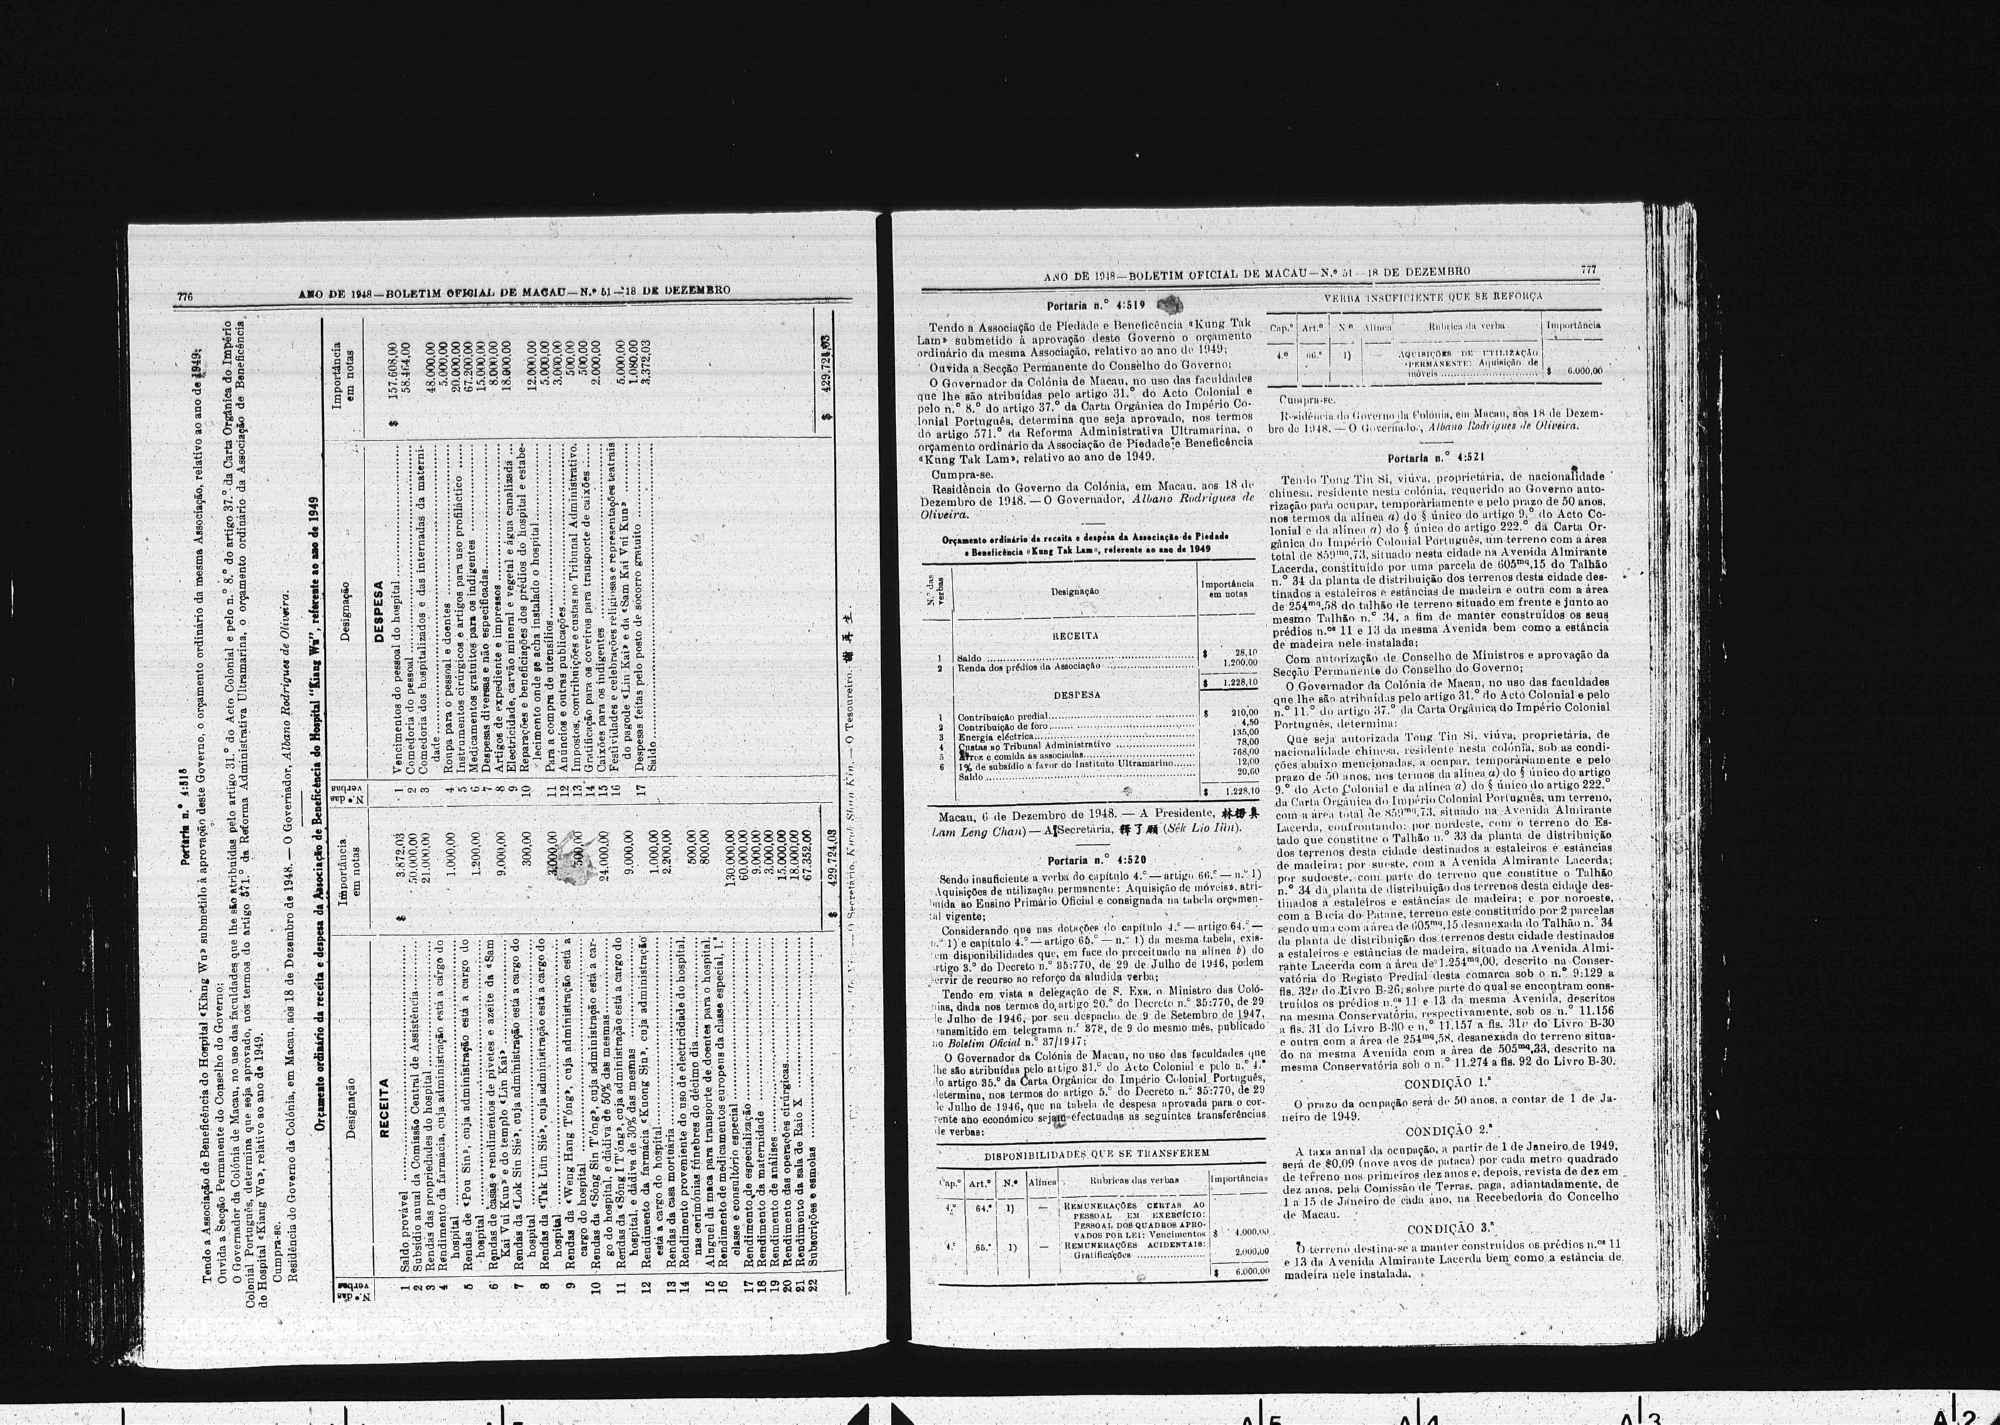 776
ANO DE 1948—BOLETIM OFICIAL DE MACAU—N.º 51—18 DE DEZEMBRO
Portaria n.º 4:518
Tendo a Associação de Beneficência do Hospital «Kiang Wu» submetido à aprovação deste Governo, o orçamento ordinário da mesma Associação, relativo ao ano de 1949;
Ouvida a Secção Permanente do Conselho do Governo;
O Governador da Colónia de Macau, no uso das faculdades que lhe são atribuídas pelo artigo 31.º do Acto Colonial e pelo n.º 8.º do artigo 37.º da Carta Orgânica do Império
Colonial Português, determina que seja aprovado, nos termos do artigo 571.º da Reforma Administrativa Ultramarina, o orçamento ordinário da Associação de Beneficência
do Hospital «Kiang Wu», relativo ao ano de 1949.
Cumpra-se.
Residência do Governo da Colónia, em Macau, aos 18 de Dezembro de 1948. — O Governador, Albano Rodrigues de Oliveira.
Orçamento ordinário da receita e despesa da Associação de Beneficência do Hospital "Kiang Wu", referente ao ano de 1949
N.º das verbas Designação Importância em notas
RECEITA
1 Saldo provável $ 3.872,03
2 Subsídio anual da Comissão Central de Assistência 50.000,00
3 Rendas das propriedades do hospital 21.000,00
4 Rendimento da farmácia, cuja administração está a cargo do
hospital 1.000,00
5 Rendas de «Pou Sin», cuja administração está a cargo do
hospital 1.200,00
6 Rendas de casas e rendimentos de pivetes e azeite da «Sam
Kai Vui Kun» e do templo «Lin Kai» 9.000,00
7 Rendas da «Lok Sin Sié», cuja administração está a cargo do
hospital 300,00
8 Rendas da «Tak Lün Sié», cuja administração está a cargo do
hospital 3.000,00
9 Rendas da «Weng Hang T'óng», cuja administração está a
cargo do hospital 500,00
10 Rendas da «Sông Sin T'óng», cuja administração está a car-
go do hospital, e dádiva de 50% das mesmas 24.000,00
11 Rendas da «Sông I T'óng», cuja administração está a cargo do
hospital, e dádiva de 30% das mesmas 9.000,00
12 Rendimento da farmácia «Kuong Sin», cuja administração
está a cargo do hospital 1.000,00
13 Rendas da casa mortuária 2.200,00
14 Rendimento proveniente do uso de electricidade do hospital,
nas cerimónias fúnebres do décimo dia 500,00
15 Aluguel da maca para transporte de doentes para o hospital. 800,00
16 Rendimento de medicamentos europeus da classe especial, 1.ª
classe e consultório especial 130.000,00
17 Rendimento de especialização 60.000,00
18 Rendimento da maternidade 9.000,00
19 Rendimento de análises 3.000,00
20 Rendimento das operações cirúrgicas 15.000,00
21 Rendimento da sala de Ráio X 18.000,00
22 Subscrições e esmolas 67.352,00
$ 429.724,03
N.º das verbas Designação Importância em notas
DESPESA
1 Vencimentos do pessoal do hospital $ 157.608,00
2 Comedoria do pessoal 58.464,00
3 Comedoria dos hospitalizados e das internadas da materni-
dade 48.000,00
4 Roupa para o pessoal e doentes 5.000,00
5 Instrumentos cirúrgicos e artigos para uso profiláctico 20.000,00
6 Medicamentos gratuitos para os indigentes 67.200,00
7 Despesas diversas e não especificadas 15.000,00
8 Artigos de expediente e impressos 8.000,00
9 Electricidade, carvão mineral e vegetal e água canalizada 18.900,00
10 Reparações e beneficiações dos prédios do hospital e estabe-
lecimento onde se acha instalado o hospital 12.000,00
11 Para a compra de utensílios 5.000,00
12 Anúncios e outras publicações 3.000,00
13 Impostos, contribuições e custas ao Tribunal Administrativo. 500,00
14 Gratificação para os coveiros para transporte de caixões 500,00
15 Caixões para os indigentes 2.000,00
16 Festividades e celebrações religiosas e representações teatrais
do pagode «Lin Kai» e da «Sam Kai Vui Kun» 5.000,00
17 Despesas feitas pelo posto de socorro gratuito 1.080,00
Saldo 3.372,03
$ 429.724,03
O Tesoureiro, 謝再生
ANO DE 1948—BOLETIM OFICIAL DE MACAU—N.º 51—18 DE DEZEMBRO
777
Portaria n.º 4:519
Tendo a Associação de Piedade e Beneficência «Kung Tak
Lam» submetido à aprovação deste Governo o orçamento
ordinário da mesma Associação, relativo ao ano de 1949;
Ouvida a Secção Permanente do Conselho do Governo;
O Governador da Colónia de Macau, no uso das faculdades
que lhe são atribuídas pelo artigo 31.º do Acto Colonial e
pelo n.º 8.º do artigo 37.º da Carta Orgânica do Império Co-
lonial Português, determina que seja aprovado, nos termos
do artigo 571.º da Reforma Administrativa Ultramarina, o
orçamento ordinário da Associação de Piedade e Beneficência
«Kung Tak Lam», relativo ao ano de 1949.
Cumpra-se.
Residência do Governo da Colónia, em Macau, aos 18 de
Dezembro de 1948. — O Governador, Albano Rodrigues de
Oliveira.
Orçamento ordinário da receita e despesa da Associação de Piedade
e Beneficência «Kung Tak Lam», referente ao ano de 1949
N.º das verbas Designação Importância em notas
RECEITA
1 Saldo $ 28,10
2 Renda dos prédios da Associação 1.200,00
$ 1.228,10
DESPESA
1 Contribuição predial $ 210,00
2 Contribuição de foro 4,50
3 Energia eléctrica 135,00
4 Custas ao Tribunal Administrativo 78,00
5 Arroz e comida às associadas 768,00
6 1% de subsídio a favor do Instituto Ultramarino 12,00
Saldo 20,60
$ 1.228,10
Macau, 6 de Dezembro de 1948. — A Presidente,
Lam Leng Chan) — A Secretária, 釋了願 (Sék Lio Iün).
Portaria n.º 4:520
Sendo insuficiente a verba do capítulo 4.º — artigo 66.º — n.º 1)
Aquisições de utilização permanente: Aquisição de móveis», atri-
buída ao Ensino Primário Oficial e consignada na tabela orçamen-
tal vigente;
Considerando que nas dotações do capítulo 4.º — artigo 64.º —
n.º 1) e capítulo 4.º — artigo 65.º — n.º 1) da mesma tabela, exis-
tem disponibilidades que, em face do preceituado na alínea b) do
artigo 3.º do Decreto n.º 35:770, de 29 de Julho de 1946, podem
servir de recurso ao reforço da aludida verba;
Tendo em vista a delegação de S. Exa. o Ministro das Coló-
nias, dada nos termos do artigo 20.º do Decreto n.º 35:770, de 29
de Julho de 1946, por seu despacho de 9 de Setembro de 1947,
transmitido em telegrama n.º 378, de 9 do mesmo mês, publicado
no Boletim Oficial n.º 37/1947;
O Governador da Colónia de Macau, no uso das faculdades que
lhe são atribuídas pelo artigo 31.º do Acto Colonial e pelo n.º 4.º
do artigo 35.º da Carta Orgânica do Império Colonial Português,
determina, nos termos do artigo 5.º do Decreto n.º 35:770, de 29
de Julho de 1946, que na tabela de despesa aprovada para o cor-
rente ano económico sejam efectuadas as seguintes transferências
de verbas:
DISPONIBILIDADES QUE SE TRANSFEREM
Cap.º Art.º N.º Alínea Rubricas das verbas Importâncias
4.º 64.º 1) — REMUNERAÇÕES CERTAS AO
PESSOAL EM EXERCÍCIO:
PESSOAL DOS QUADROS APRO-
VADOS POR LEI: Vencimentos $ 4.000,00
4.º 65.º 1) — REMUNERAÇÕES ACIDENTAIS:
Gratificações 2.000,00
$ 6.000,00
VERBA INSUFICIENTE QUE SE REFORÇA
Cap.º Art.º N.º Alínea Rubrica da verba Importância
4.º 66.º 1) AQUISIÇÕES DE UTILIZAÇÃO
PERMANENTE: Aquisição de
móveis $ 6.000,00
Cumpra-se.
Residência do Governo da Colónia, em Macau, aos 18 de Dezem-
bro de 1948. — O Governador, Albano Rodrigues de Oliveira.
Portaria n.º 4:521
Tendo Tong Tin Si, viúva, proprietária, de nacionalidade
chinesa, residente nesta colónia, requerido ao Governo auto-
rização para ocupar, temporàriamente e pelo prazo de 50 anos,
nos termos da alínea a) do § único do artigo 9.º do Acto Co-
lonial e da alínea a) do § único do artigo 222.º da Carta Or-
gânica do Império Colonial Português, um terreno com a área
total de 859mq,73, situado nesta cidade na Avenida Almirante
Lacerda, constituído por uma parcela de 605mq,15 do Talhão
n.º 34 da planta de distribuição dos terrenos desta cidade des-
tinados a estaleiros e estâncias de madeira e outra com a área
de 254mq,58 do talhão de terreno situado em frente e junto ao
mesmo Talhão n.º 34, a fim de manter construídos os seus
prédios n.os 11 e 13 da mesma Avenida bem como a estância
de madeira nele instalada;
Com autorização de Conselho de Ministros e aprovação da
Secção Permanente do Conselho do Governo;
O Governador da Colónia de Macau, no uso das faculdades
que lhe são atribuídas pelo artigo 31.º do Acto Colonial e pelo
n.º 11.º do artigo 37.º da Carta Orgânica do Império Colonial
Português, determina:
Que seja autorizada Tong Tin Si, viúva, proprietária, de
nacionalidade chinesa, residente nesta colónia, sob as condi-
ções abaixo mencionadas, a ocupar, temporàriamente e pelo
prazo de 50 anos, nos termos da alínea a) do § único do artigo
9.º do Acto Colonial e da alínea a) do § único do artigo 222.º
da Carta Orgânica do Império Colonial Português, um terreno,
com a área total de 859mq,73, situado na Avenida Almirante
Lacerda, confrontando: por nordeste, com o terreno do Es-
tado que constitue o Talhão n.º 33 da planta de distribuição
dos terrenos desta cidade destinados a estaleiros e estâncias
de madeira; por sueste, com a Avenida Almirante Lacerda;
por sudoeste, com parte do terreno que constitue o Talhão
n.º 34 da planta de distribuição dos terrenos desta cidade des-
tinados a estaleiros e estâncias de madeira; e por noroeste,
com a Bacia do Patane, terreno este constituído por 2 parcelas
sendo uma com a área de 605mq,15 desanexada do Talhão n.º 34
da planta de distribuição dos terrenos desta cidade destinados
a estaleiros e estâncias de madeira, situado na Avenida Almi-
rante Lacerda com a área de 1.254mq,00, descrito na Conser-
vatória do Registo Predial desta comarca sob o n.º 9:129 a
fls. 32v do Livro B-26, sobre parte do qual se encontram cons-
truídos os prédios n.os 11 e 13 da mesma Avenida, descritos
na mesma Conservatória, respectivamente, sob os n.º 11.156
a fls. 31 do Livro B-30 e n.º 11.157 a fls. 31v do Livro B-30
e outra com a área de 254mq,58, desanexada do terreno situa-
do na mesma Avenida com a área de 505mq,33, descrito na
mesma Conservatória sob o n.º 11.274 a fls. 92 do Livro B-30.
CONDIÇÃO 1.ª
O prazo da ocupação será de 50 anos, a contar de 1 de Ja-
neiro de 1949.
CONDIÇÃO 2.ª
A taxa anual da ocupação, a partir de 1 de Janeiro de 1949,
será de $0,09 (nove avos de pataca) por cada metro quadrado
de terreno nos primeiros dez anos e, depois, revista de dez em
dez anos, pela Comissão de Terras, paga, adiantadamente, de
1 a 15 de Janeiro de cada ano, na Recebedoria do Concelho
de Macau.
CONDIÇÃO 3.ª
O terreno destina-se a manter construídos os prédios n.os 11
e 13 da Avenida Almirante Lacerda bem como a estância de
madeira nele instalada.
A 5
A 4
A 3
A 2